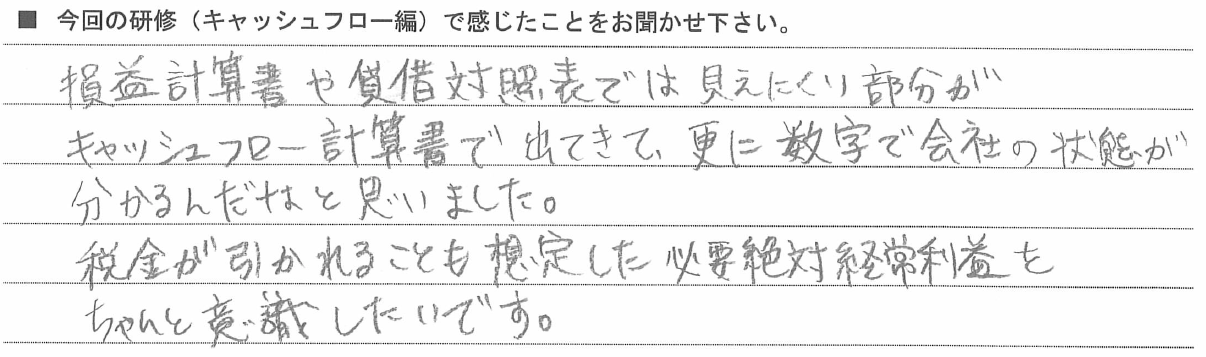 ■ 今回の研修（キャッシュフロー編）で感じたことをお聞かせ下さい。
損益計算書や貸借対照表では見えにくい部分が
キャッシュフロー計算書で出てきて、更に数字で会社の状態が
分かるんだなと思いました。
税金が引かれることも想定した必要絶対経常利益を
ちゃんと意識したいです。